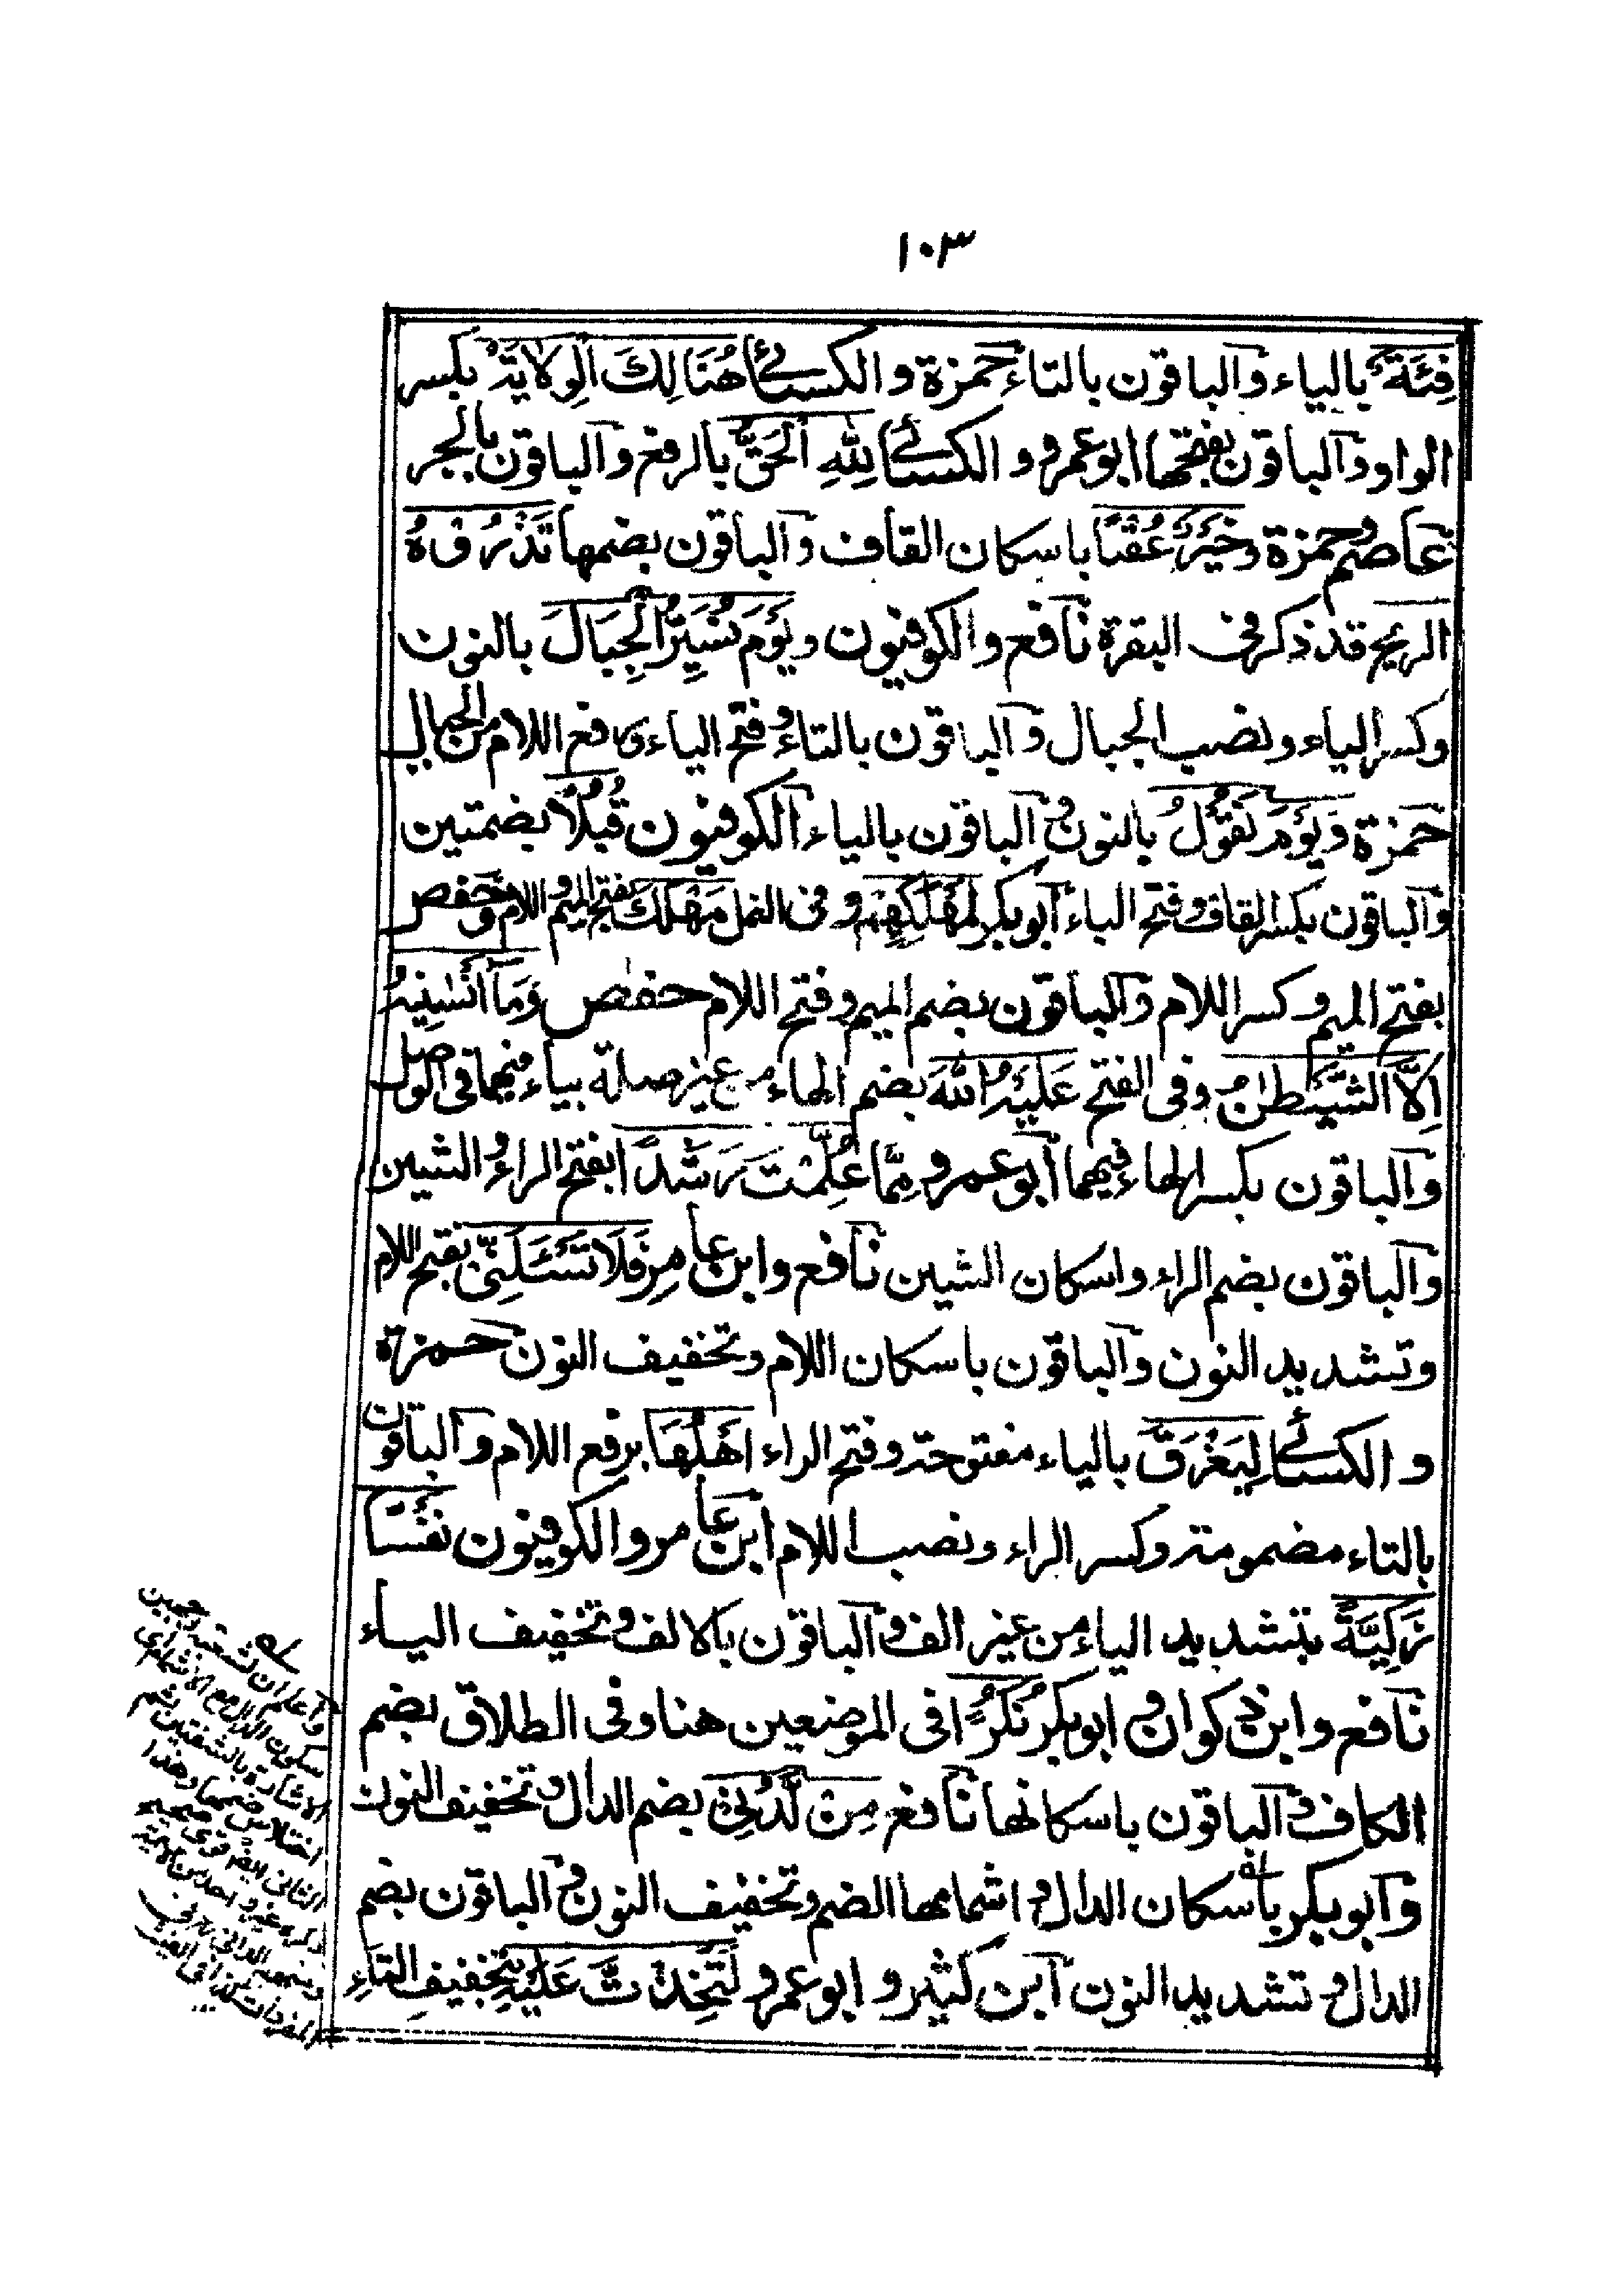 ١٠٣
فِئَةٌ بالياء والباقون بالتاء حمزة والكسائي هُنَالِكَ الْوِلَايَةُ بكسر
الواو والباقون بفتحها ابوعمرو والكسائي لِلّٰهِ الْحَقُّ بالرفع والباقون بالجر
عاصم وحمزة وخَيْرٌ عُقْبًا باسكان القاف والباقون بضمها تَذْرُوْهُ
الريح قد ذكر فى البقرة نافع والكوفيون ويَوْمَ نُسَيِّرُ الْجِبَالَ بالنون
وكسر الياء ونصب الجبال والباقون بالتاء وفتح الياء ورفع اللام من الجبال
حمزة وَيَوْمَ نَقُوْلُ بالنون والباقون بالياء الكوفيون قُبُلًا بضمتين
والباقون بكسر القاف وفتح الباء ابوبكر لِمَهْلَكِهِمْ وفى النمل مَهْلَكَ بفتح الميم واللام وحفص
بفتح الميم وكسر اللام والباقون بضم الميم وفتح اللام حفص وَمَا اَنْسٰنِيْهُ
اِلَّا الشَّيْطٰنُ وفى الفتح عَلَيْهُ اللّٰهَ بضم الهاء من غير صلة بياء فيهما فى الوصل
والباقون بكسر الهاء فيهما ابوعمرو مِمَّا عُلِّمْتَ رَشَدًا بفتح الراء والشين
والباقون بضم الراء واسكان الشين نافع وابن عامر فَلَا تَسْـَٔلَنِّيْ بفتح اللام
وتشديد النون والباقون باسكان اللام وتخفيف النون حمزة
والكسائي لِيَغْرَقَ بالياء مفتوحة وفتح الراء اَهْلُهَا برفع اللام والباقون
بالتاء مضمومة وكسر الراء ونصب اللام ابن عامر والكوفيون نَفْسًا
زَكِيَّةً بتشديد الياء من غير الف والباقون بالالف وتخفيف الياء
نافع وابن ذكوان وابوبكر نُكُرًا فى الموضعين هنا وفى الطلاق بضم
الكاف والباقون باسكانها نافع مِنْ لَدُنِيْ بضم الدال وتخفيف النون
وابوبكر باسكان الدال واشمامها الضم وتخفيف النون والباقون بضم
الدال وتشديد النون ابن كثير وابوعمرو لَتَخِذْتَ عَلَيْهِ بتخفيف التاء
واعلم ان لشعبة وجهين
سكون الدال مع الاشمام اى
الاشارة بالشفتين ثم
اختلاس ضمها وهذا